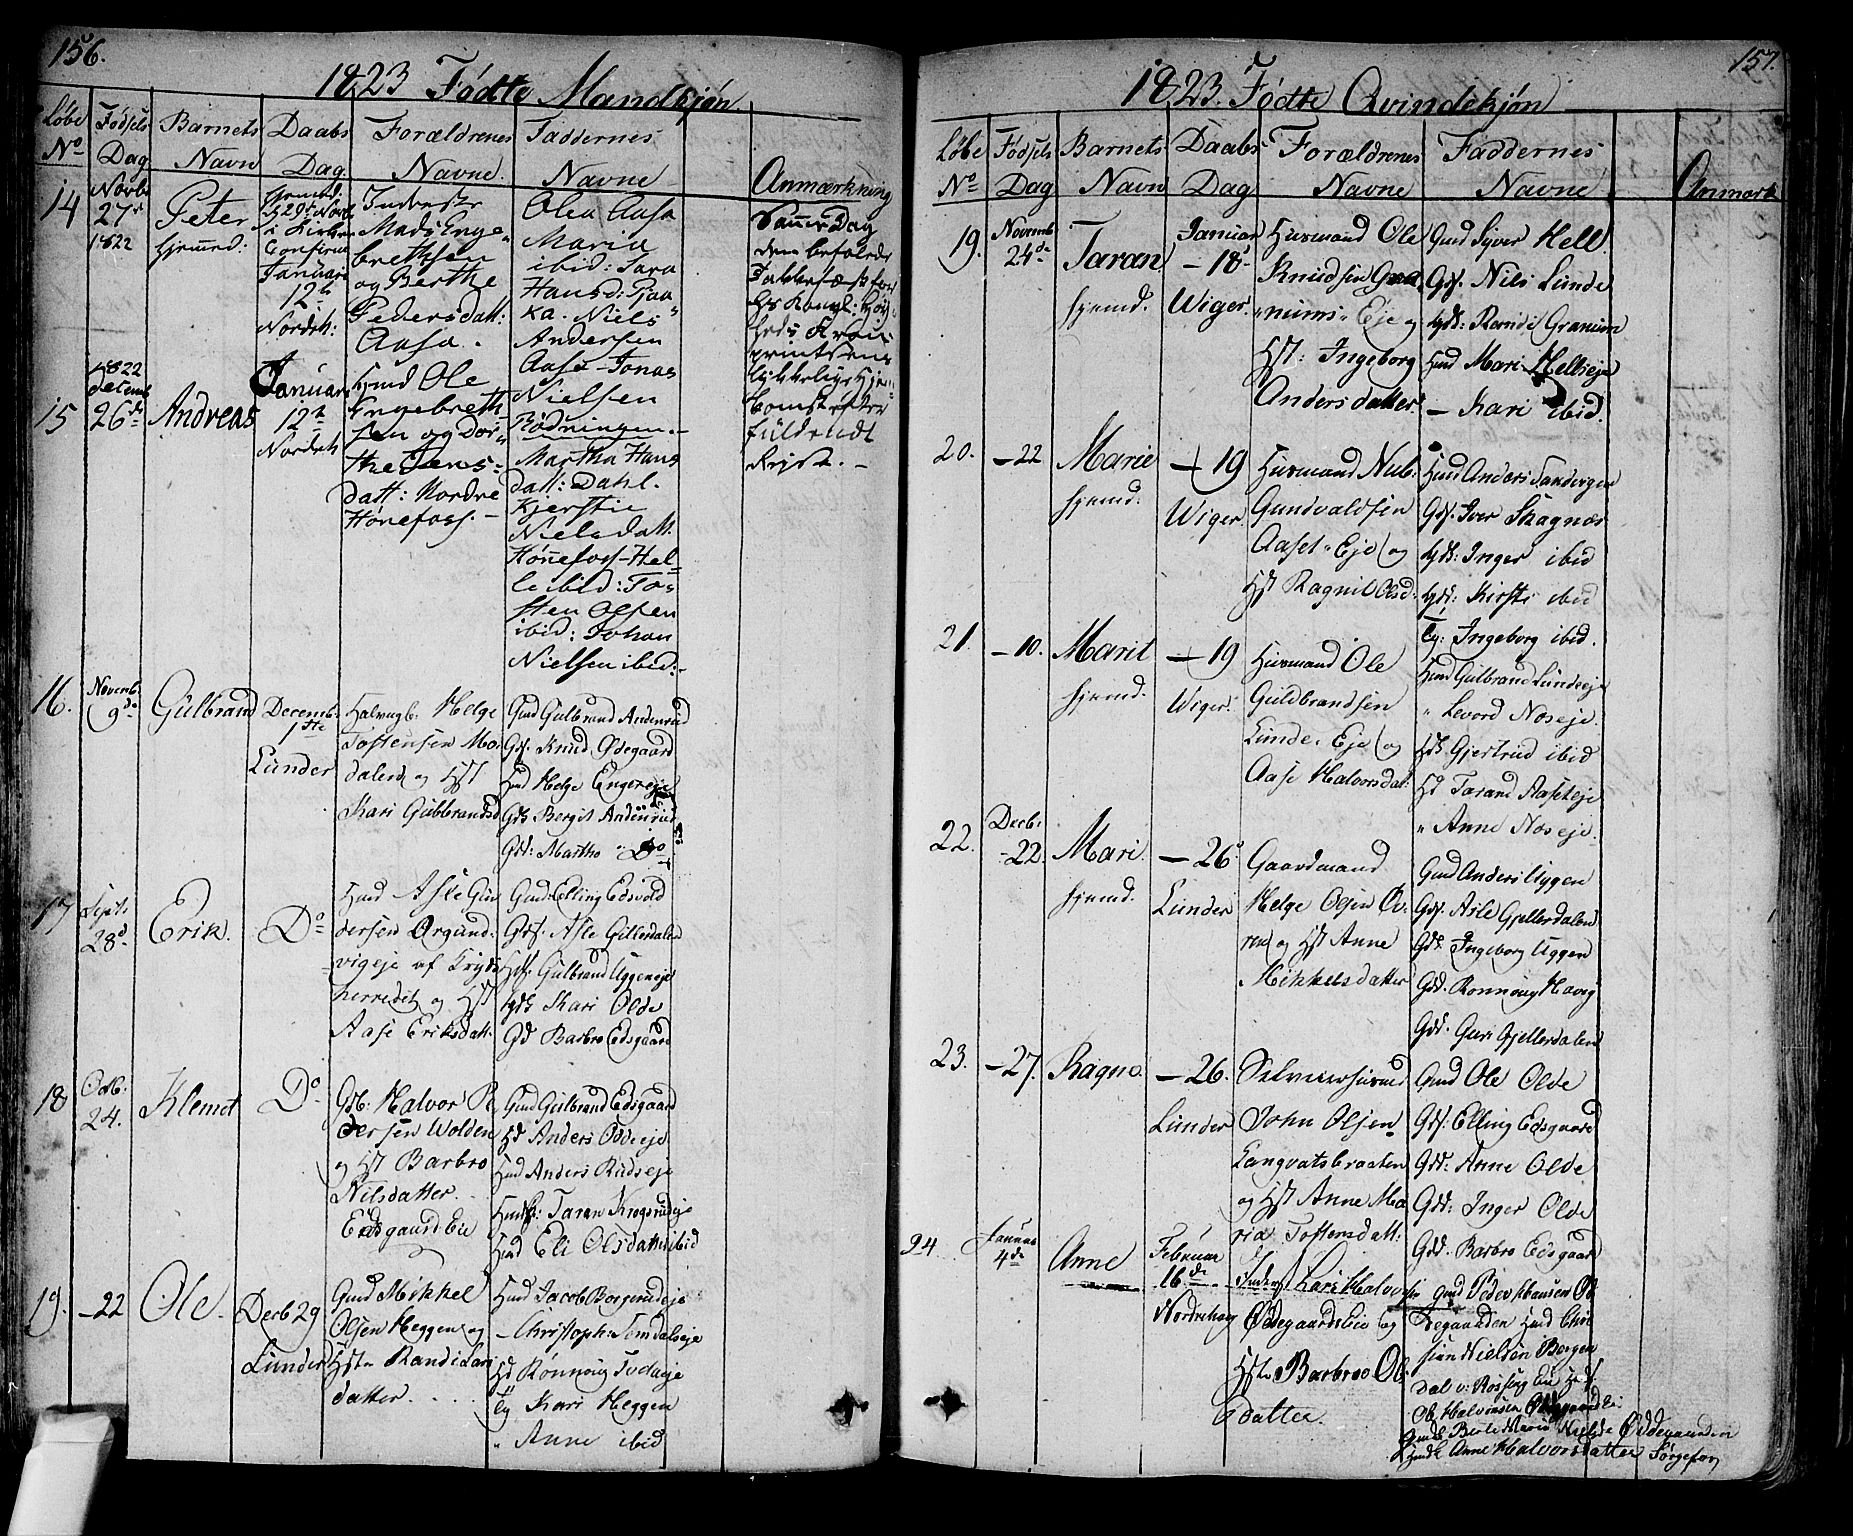 156.
1823 Fødte Mandkjøn
Løbe Fødsels Barnets Daabs Forældrenes Faddernes
No Dag Navn Dag Navne. Navne Anmærkning
14
Novbr
27de
1822
Peter
hjemmed:
i Kirken
Januari
12te
Nordrh:
Inderster
Mads Enge"
brethsen
og Berthe
Pedersdatt:
Aasa.
Olea Aasa
Maria
ibid: Sara
Hansd: Pjaa"
ka. Niels
Andersen
Aasa-Jonas
Nielsen
Rødningen.-
Samme Dag
den befalede
lykkelige Hjem"
komst efter
fuldendt
Rejse. -
15
1822
decemb
26de
Andreas
Januari
12te
Nordreh
Hmd Ole
Engebreth-
sen og Dor"
the Jens-
datt: Nordre
Hønefoss. -
Martha Hans
datt: Dahl.
Kjerstie
Nielsdatt.
Hønefoss-Hel-
le ibid: To-
sten Olsen
ibid: Johan
Nielsen ibid:-
16.
Novemb.
9de
Gulbrand
Decemb.
1ste
Lunder
Halvugb. Helge
Tostensen Mo-
dalen og Hst
Kari Gulbrandsd
Gmd Gulbrand Anderud
Gds. Knud Ødegaard
Hmd Helge Engereje
Gds Bergit Anderud
Gdd: Martha " Do
17
Septb
28d.
Erik.
Do
Hmd Asle Gun
dersen Ørgund:
vigeje af Kryds
herredet og Hst
Aase Eriksdatt.
Gmd: Elling Edsvold
Gds. Asle Gillerdalen
Hds. Gulbrand Uggeneje
Gds Kari Olde
Gd Barbro Edsgaard
18
Octb.
24.
Klemet
Do
Gdb: Halvor Pe
dersen Wolden
og Hst Barbro
Nilsdatter.
Edsgaard Eie
Gmd Gulbrand Edsgaard
Hd Anders Oddeeje
Hmd Anders Rudseje
Taran Krogsrudeje
Hmd Eli Olsdatter ibid
19.
-22
Ole.
Decb 29
Lunder
Gmd Mikkel
Olsen Heggen og
Hstr Randi Lari
datter . . .
Hmd Jacob Borgerudeje
- Christoph: Somdalseje
Hd Rønnoug Todaeje
Ty Kari Heggen
" Anne ibid
157.
1823. Fødte Qvindekjøn
Løbe Fødsels Barnets Daabs Forældrenes Faddernes
No Dag Navn Dag Navne Navne Anmærk
19.
Novemb
24de
Taran
hjemd.
Januar
- 18-
Wiger
Husmand Ole
Knudsen Gra
"nums " Eje og
Hst: Ingeborg
Andersdatter
Gmd Syver Hell.
Gds. Nils Lunde
Gdd: Randi Granum
Hmd Mari Hellseje
- Kari ibid.
20.
-22
Marie
hjemd.
- 19
Wiger.
Husmand Nub:
Gundvaldsen
Aaset " Eje og
Hst Ragnil Olsd:
Hmd Anders Sandvigen
Gds. Iver Skagnæs
Gdd: Inger ibid
Gdd: Kirsti ibid
Ty: Ingeborg ibid.
21.
-10.
Marit
hjemd.
- 19
Wiger.
Husmand Ole
Guldbrandsen
Lunde " Eje og
Aase Halvorsdat:
Hmd Gulbrand Lundeeje
" Levord Noseje.
Hds. Gjertrud ibid
Hd Tarand Aaseteje
" Anne Noseje.
22.
Decb.
-22.
Mari.
hjemd.
- 26.
Lunder
Gaardmand
Helge Olsen Øv-
ren og Hst Anne
Mikkelsdatter
Gmd Anders Uggen
Gds. Asle Gjellerdalen
Gdd. Ingeborg Uggen
Gdd. Rønnoug Havig
Gdd. Guri Gjellerdalen
23.
-27.
Ragno.
- 26.
Lunder
Selveierhusmd
John Olsen
Langvatsbraaten
og Hst Anne Ma
ria Tostensdatt:
Gmd Ole Olde
Gds. Elling Edsgaard
Gdd: Anne Olde
Gdd: Inger Olde
Gdd. Barbro Edsgaard
24.
Januar
4de
Anne
Februar
16de
Nordrehoug
Inderst Lars Halvor
sen
Ødegaards Eie og
Hste Barbroe Ols
datter.
Gmd Peder Hansen Ød
degaarden Hmd Chri
stian Nielsen Bergen
dal v: Røssing Eie
Ole Halvorsen Ødegaards Ei:
Berte Maria Nielsd: Øddegaarden
Anne Halvorsdatter Sørgefoss